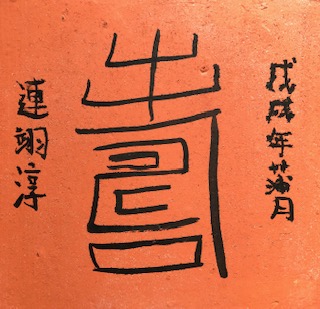 戊戌年蒲月
壽
連翊淳